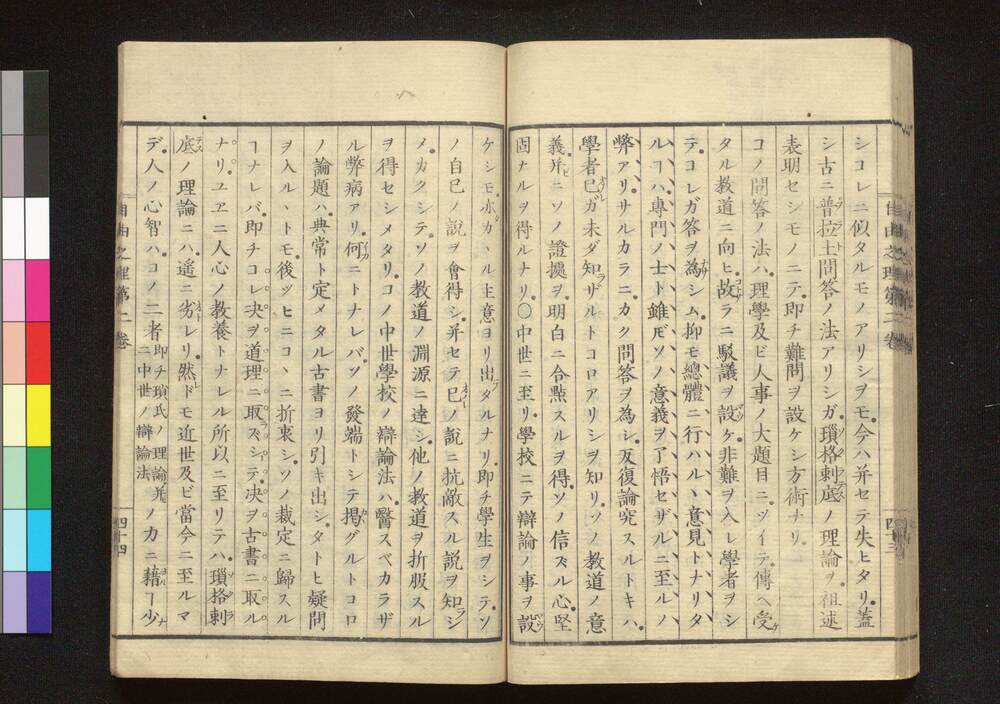 シコレニ似タルモノアリシヲモ今ハ并セテ失ヒタリ蓋
シ古ニ普拉土問答ノ法アリシガ瑣格剌底ノ理論ヲ祖述
表明セシモノニテ即チ難問ヲ設ケシ方術ナリ
コノ問答ノ法ハ理學及ビ人事ノ大題目ニツイテ傳ヘ受
タル教道ニ向ヒ故ラニ駁議ヲ設ケ非難ヲ入レ學者ヲシ
テコレガ答ヲ為シム抑モ總體ニ行ハルヽ意見トナリタ
ルヿハ專門ノ士ト雖𪜈ソノ意義ヲ了悟セザルニ至ルノ
弊アリサルカラニカク問答ヲ為シ反復論究スルトキハ
學者己ガ未ダ知ラザルトコロアリシヲ知リソノ教道ノ意
義并ニソノ證據ヲ明白ニ合點スルヲ得ソノ信ズル心堅
固ナルヲ得ルナリ○中世ニ至リ學校ニテ辯論ノ事ヲ設
ケシモ亦カヽル主意ヨリ出タルナリ即チ學生ヲシテソ
ノ自己ノ説ヲ會得シ并セテ己ノ説ニ抗敵スル説ヲ知ラシ
メカクシテソノ教道ノ淵源ニ達シ他ノ教道ヲ折服スル
ヲ得セシメタリコノ中世學校ノ辯論法ハ醫スベカラザ
ル弊病アリ何ニトナレバソノ發端トシテ掲グルトコロ
ノ論題ハ典常ト定メタル古書ヨリ引キ出シタトヒ疑問
ヲ入ルヽトモ後ツヒニコヽニ折衷シソノ裁定ニ歸スル
ヿナレバ即チコレ決ヲ道理ニ取ラズシテ決ヲ古書ニ取ル
ナリユヱニ人心ノ教養トナレル所以ニ至リテハ瑣格剌
底ノ理論ニハ遥ニ劣レリ然レドモ近世及ビ當今ニ至ルマ
デ人ノ心智ハコノ二者即チ瑣氏ノ理論并ニ中世ノ辯論法ノ力ニ藉ルヿ少
自由之理第二卷
四十三
自由之理第二卷
四十四